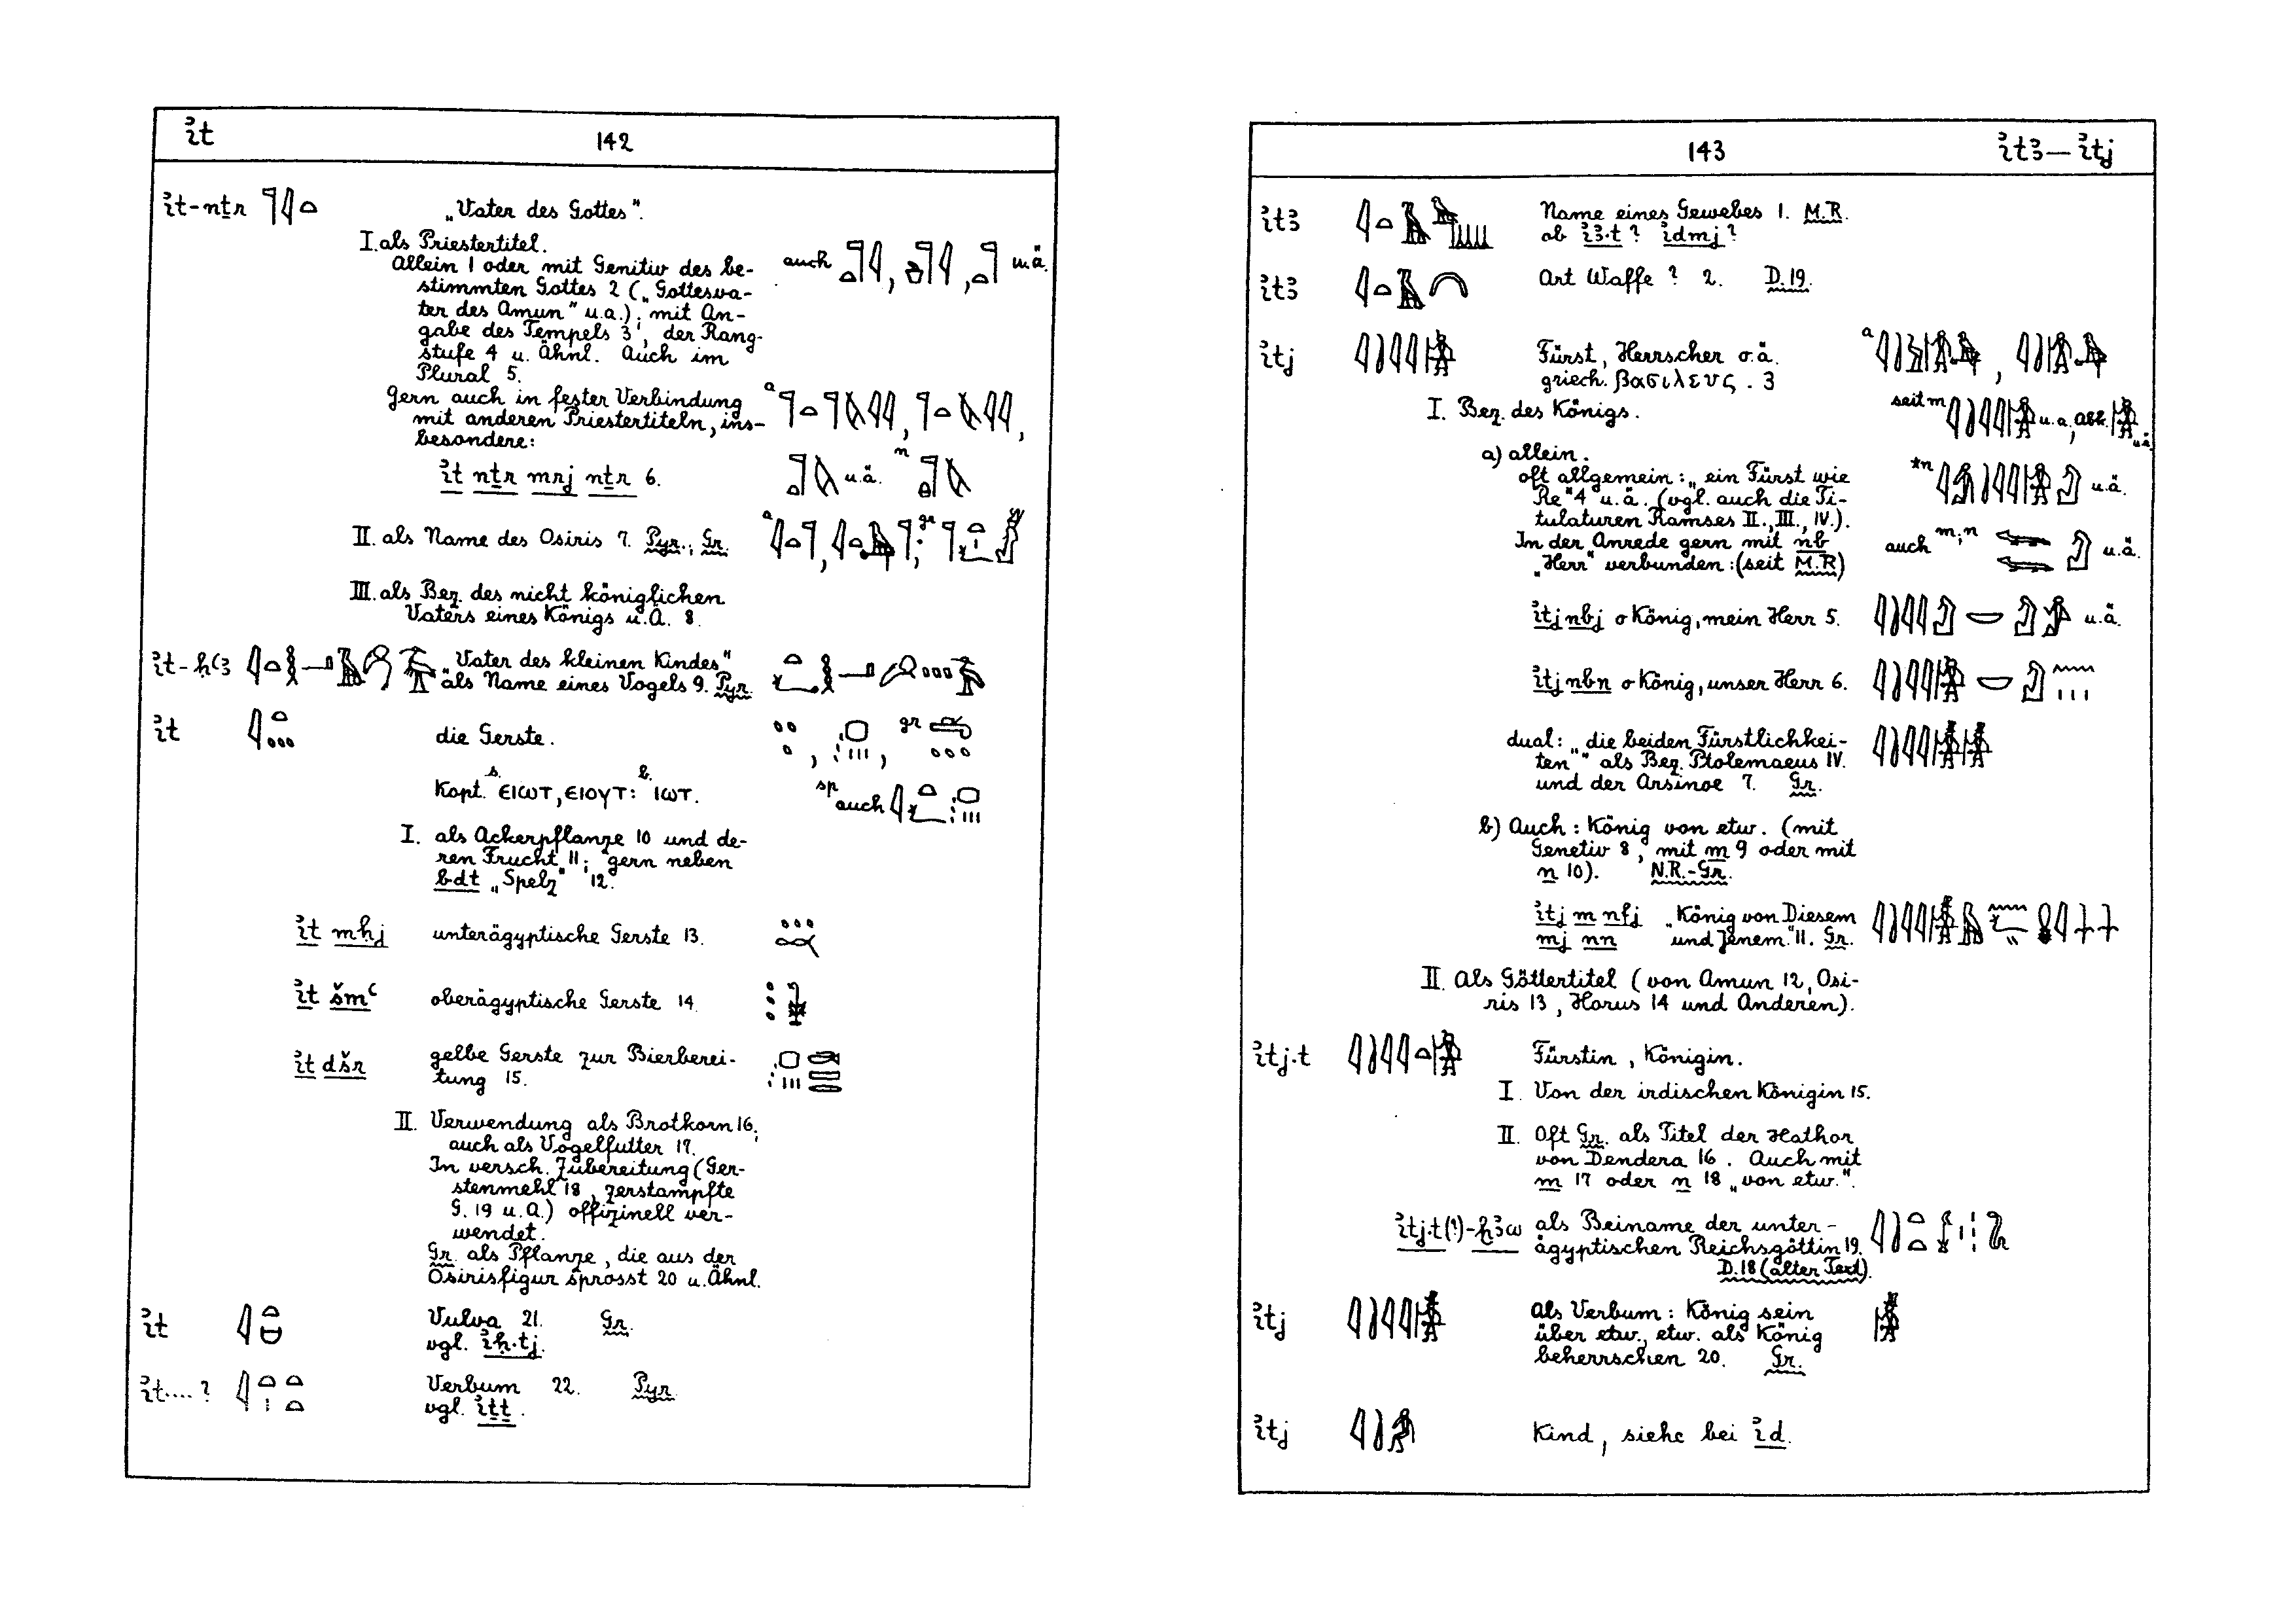 ı͗t
142
ı͗t-nṯr
„Vater des Gottes".
I. als Priestertitel.
Allein 1 oder mit Genitiv des be-
stimmten Gottes 2 („Gottesva-
ter des Amun" u.a.); mit An-
gabe des Tempels 3, der Rang-
stufe 4 u. Ähnl. Auch im
Plural 5.
auch , , u.ä.
Gern auch in fester Verbindung
mit anderen Priestertiteln, ins-
besondere:
a , ,
ı͗t nṯr mrj nṯr 6.
u.ä. n
II. als Name des Osiris 7. Pyr., Gr.
a , ; gr
III. als Bez. des nicht königlichen
Vaters eines Königs u.Ä. 8.
ı͗t-ḥꜥꜣ
„Vater des kleinen Kindes"
als Name eines Vogels 9. Pyr.
ı͗t
die Gerste.
, , gr
Kopt. s. ⲉⲓⲱⲧ, ⲉⲓⲟⲩⲧ: b. ⲓⲱⲧ.
sp auch
I. als Ackerpflanze 10 und de-
ren Frucht 11; gern neben
bdt „Spelz" 12.
ı͗t mḥj unterägyptische Gerste 13.
ı͗t šmꜥ oberägyptische Gerste 14.
ı͗t dšr gelbe Gerste zur Bierberei-
tung 15.
II. Verwendung als Brotkorn 16,
auch als Vogelfutter 17.
In versch. Zubereitung (Ger-
stenmehl 18, zerstampfte
G. 19 u.a.) offizinell ver-
wendet.
Gr. als Pflanze, die aus der
Osirisfigur sprosst 20 u. Ähnl.
ı͗t
Vulva 21. Gr.
vgl. ı͗ḥ.tj.
ı͗t....?
Verbum 22. Pyr.
vgl. ı͗ṯṯ.
143
ı͗tꜣ—ı͗tj
ı͗tꜣ
Name eines Gewebes 1. M.R.
ob ı͗ꜣ.t? ı͗dmj?
ı͗tꜣ
Art Waffe? 2. D.19.
ı͗tj
Fürst, Herrscher o.ä.
griech. βασιλευς. 3
a ,
I. Bez. des Königs.
seit m u.a., Abk. u.ä.
a) allein.
oft allgemein: „ein Fürst wie
Re" 4 u.ä. (vgl. auch die Ti-
tulaturen Ramses II., III., IV.).
*n u.ä.
In der Anrede gern mit nb
„Herr" verbunden: (seit M.R)
auch m;n u.ä.
ı͗tj nbj o König, mein Herr 5. u.ä.
ı͗tj nbn o König, unser Herr 6.
dual: „die beiden Fürstlichkei-
ten" als Bez. Ptolemaeus IV.
und der Arsinoe 7. Gr.
b) Auch: König von etw. (mit
Genetiv 8, mit m 9 oder mit
n 10). N.R.-Gr.
ı͗tj m nfj „König von Diesem
mj nn und Jenem." 11. Gr.
II. Als Göttertitel (von Amun 12, Osi-
ris 13, Horus 14 und Anderen).
ı͗tj.t
Fürstin, Königin.
I. Von der irdischen Königin 15.
II. Oft Gr. als Titel der Hathor
von Dendera 16. Auch mit
m 17 oder n 18 „von etw.".
ı͗tj.t(?)-ḫꜣw als Beiname der unter-
ägyptischen Reichsgöttin 19.
D.18 (alter Text).
ı͗tj
Als Verbum: König sein
über etw., etw. als König
beherrschen 20. Gr.
ı͗tj
Kind, siehe bei ı͗d.